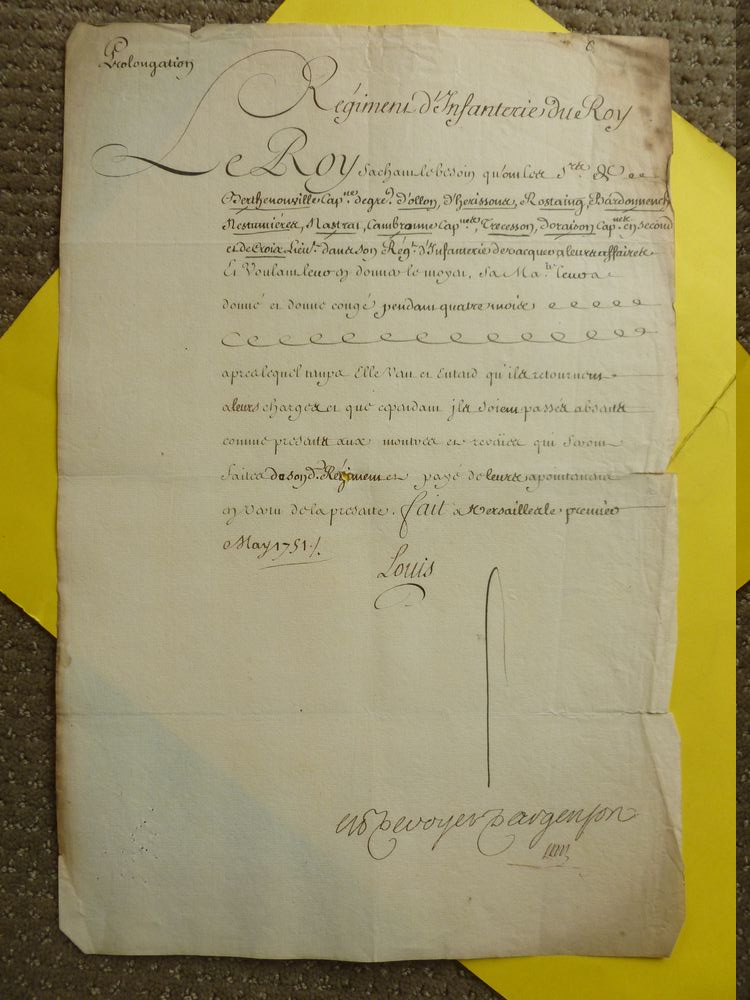 Prolongation
Régiment d'Infanterie du Roy
Le Roy sachant le besoin qu'ont les Srs. De
Berthenonville Capne. de gre.rs d'ollon, d'herissons, Rostaing, Bardonnench
Nesumières, Nastrai, Cambronne Capnes., Trecesson, doraison Capnes. en second
et de Croix Lieut. dans son Régt. d'Infanterie de vacquer a leurs affaires
Et Voulant leur en donner le moyen, Sa Maté. leur a
donné et donne congé pendant quatre mois
apres lequel temps Elle Veut et Entend qu'ils retournent
a leurs charges et que cependant jls soient passés absents
comme presents aux montres et revües qui seront
faites de son d. Régiment et payé de leurs apointements
en vertu de la presente. fait a Versailles le premier
May 1751./.
Louis
de voyer d'argenson